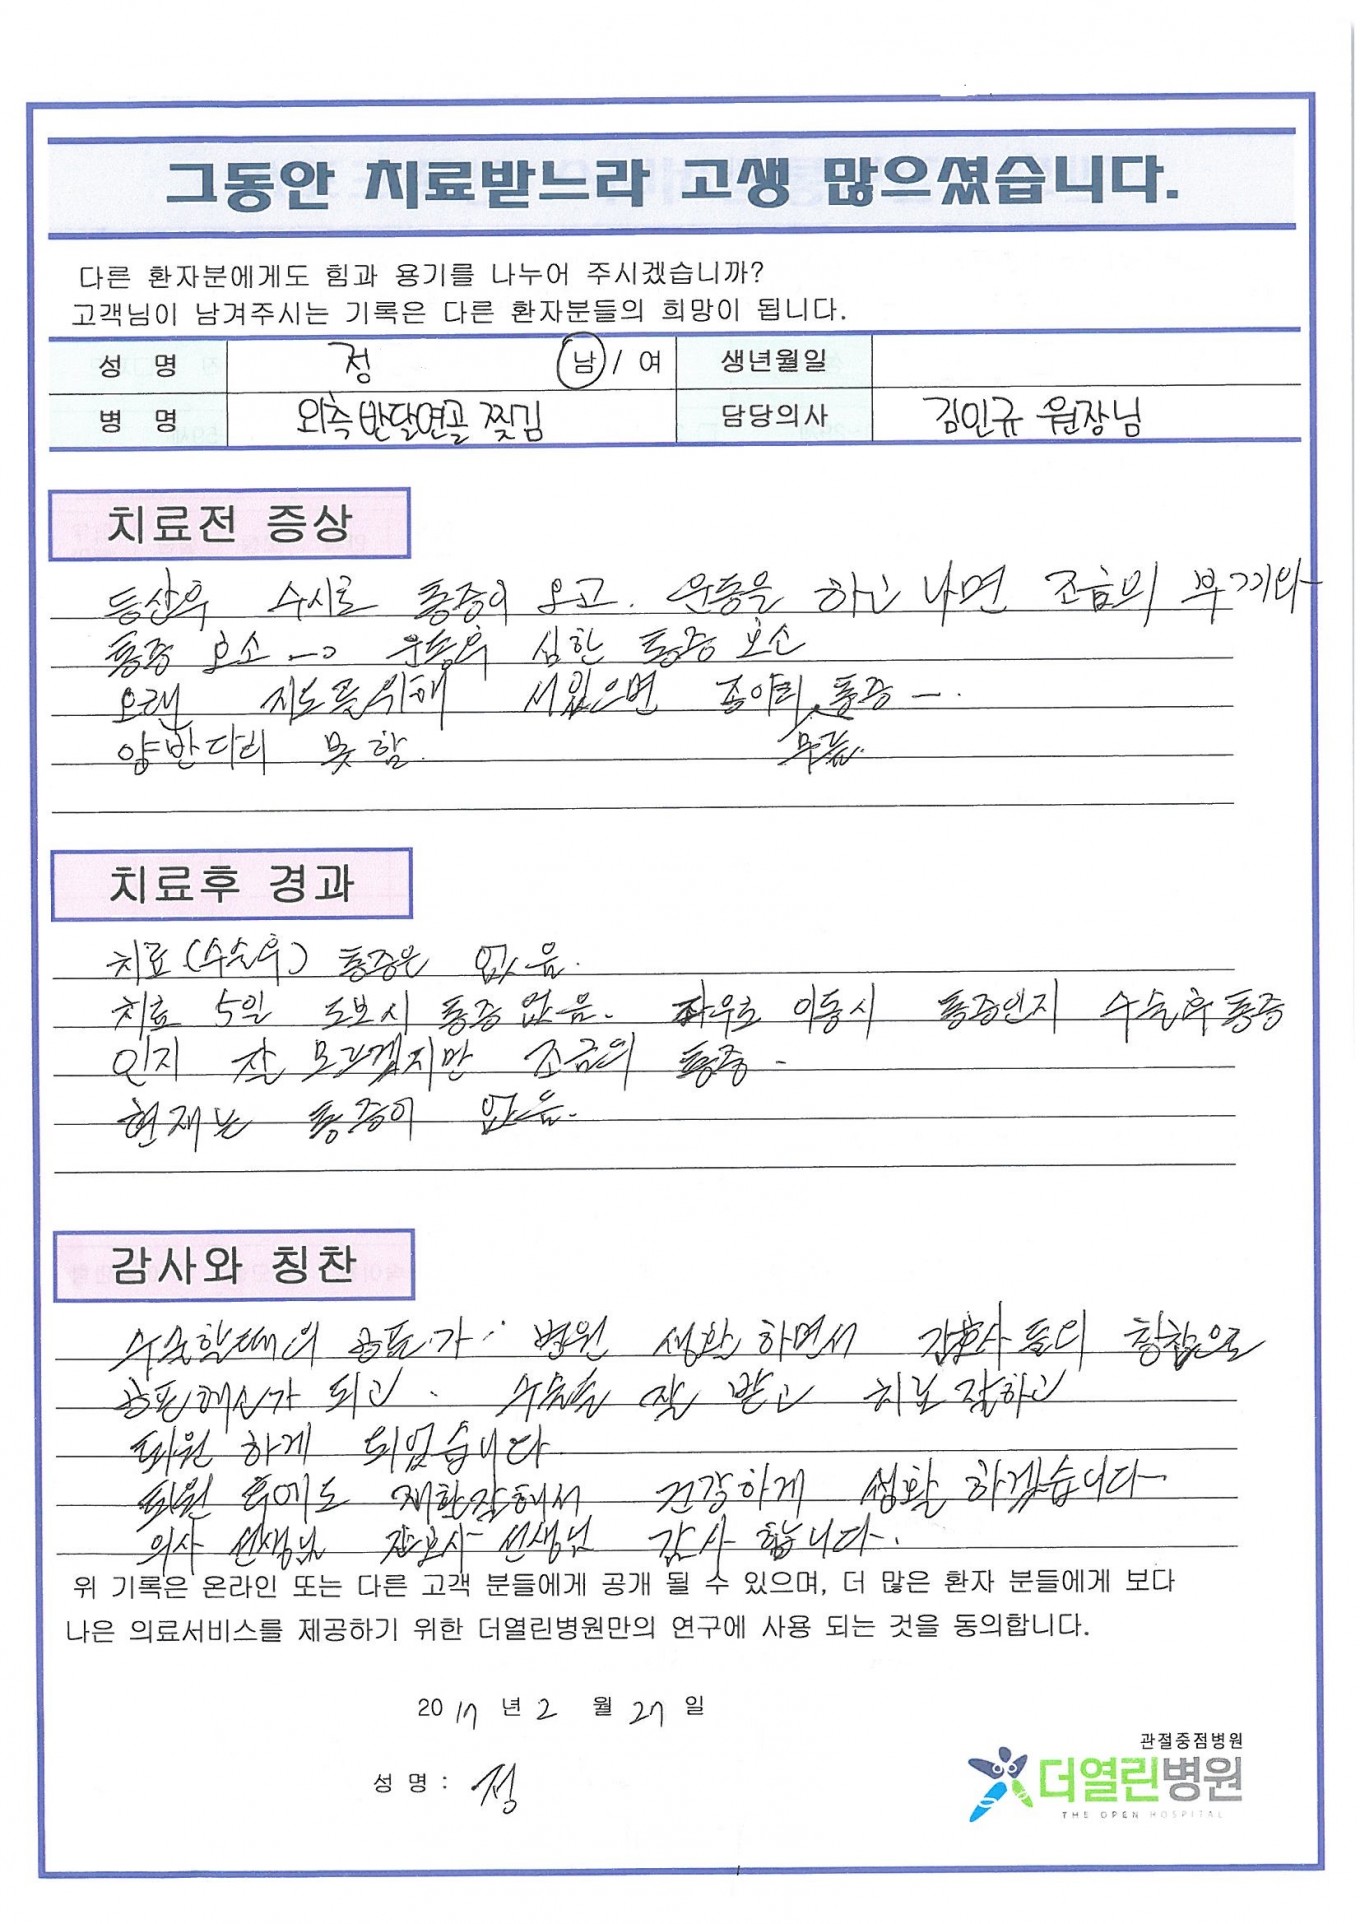 그동안 치료받느라 고생 많으셨습니다.
다른 환자분에게도 힘과 용기를 나누어 주시겠습니까?
고객님이 남겨주시는 기록은 다른 환자분들의 희망이 됩니다.
성 명 정 남 / 여 생년월일
병 명 외측 반달연골 찢김 담당의사 김민규 원장님
치료전 증상
등산후 수시로 통증이 오고. 운동을 하고 나면 조금의 붓기와
통증 호소 운동후 심한 통증 호소
오랜 지도를 위해 서있으면 종아리, 통증
무릎.
양반다리 못함.
치료후 경과
치료 (수술후) 통증은 없음.
치료 5일 도보시 통증 없음. 좌우로 이동시 통증인지 수술후 통증
인지 잘 모르겠지만 조금의 통증
현재는 통증이 없음.
감사와 칭찬
수술할때의 공포가 병원 생활 하면서 간호사 들의 친절으로
공포해소가 되고. 수술을 잘 받고 치료 잘하고
퇴원 하게 되었습니다
퇴원 후에도 재활잘해서 건강하게 생활 하겠습니다
의사 선생님 간호사 선생님 감사 합니다.
위 기록은 온라인 또는 다른 고객 분들에게 공개 될 수 있으며, 더 많은 환자 분들에게 보다
나은 의료서비스를 제공하기 위한 더열린병원만의 연구에 사용 되는 것을 동의합니다.
2017 년 2 월 27 일
성 명 : 정
관절중점병원
더열린병원
THE OPEN HOSPITAL